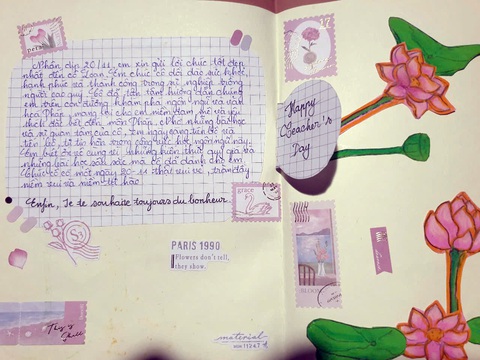 Nhân dịp 20/11, em xin gửi lời chúc tốt đẹp
nhất đến cô Loan. Em chúc cô dồi dào sức khỏe,
hạnh phúc và thành công trong sự nghiệp trồng
người cao quý. Cô đã tận tâm hướng dẫn chúng
em trên con đường khám phá ngôn ngữ và văn
hóa Pháp, mang tới cho em niềm đam mê và yêu
thích đối với môn Pháp. Nhờ những bài học
và sự quan tâm của cô, em ngày càng tiến bộ và
tiến bộ, tự tin hơn trong công cuộc học ngôn ngữ này.
Em biết ơn cô cùng với những kiến thức quý giá và
những bài học sâu sắc mà cô đã dành cho em.
Chúc cô có một ngày 20-11 thật vui vẻ, tràn đầy
niềm vui và niềm tự hào
Enfin, Je te souhaite toujours du bonheur.
Happy
Teacher's
Day
grace
PARIS 1990
Flowers don't tell,
they show.
BLOOM
material